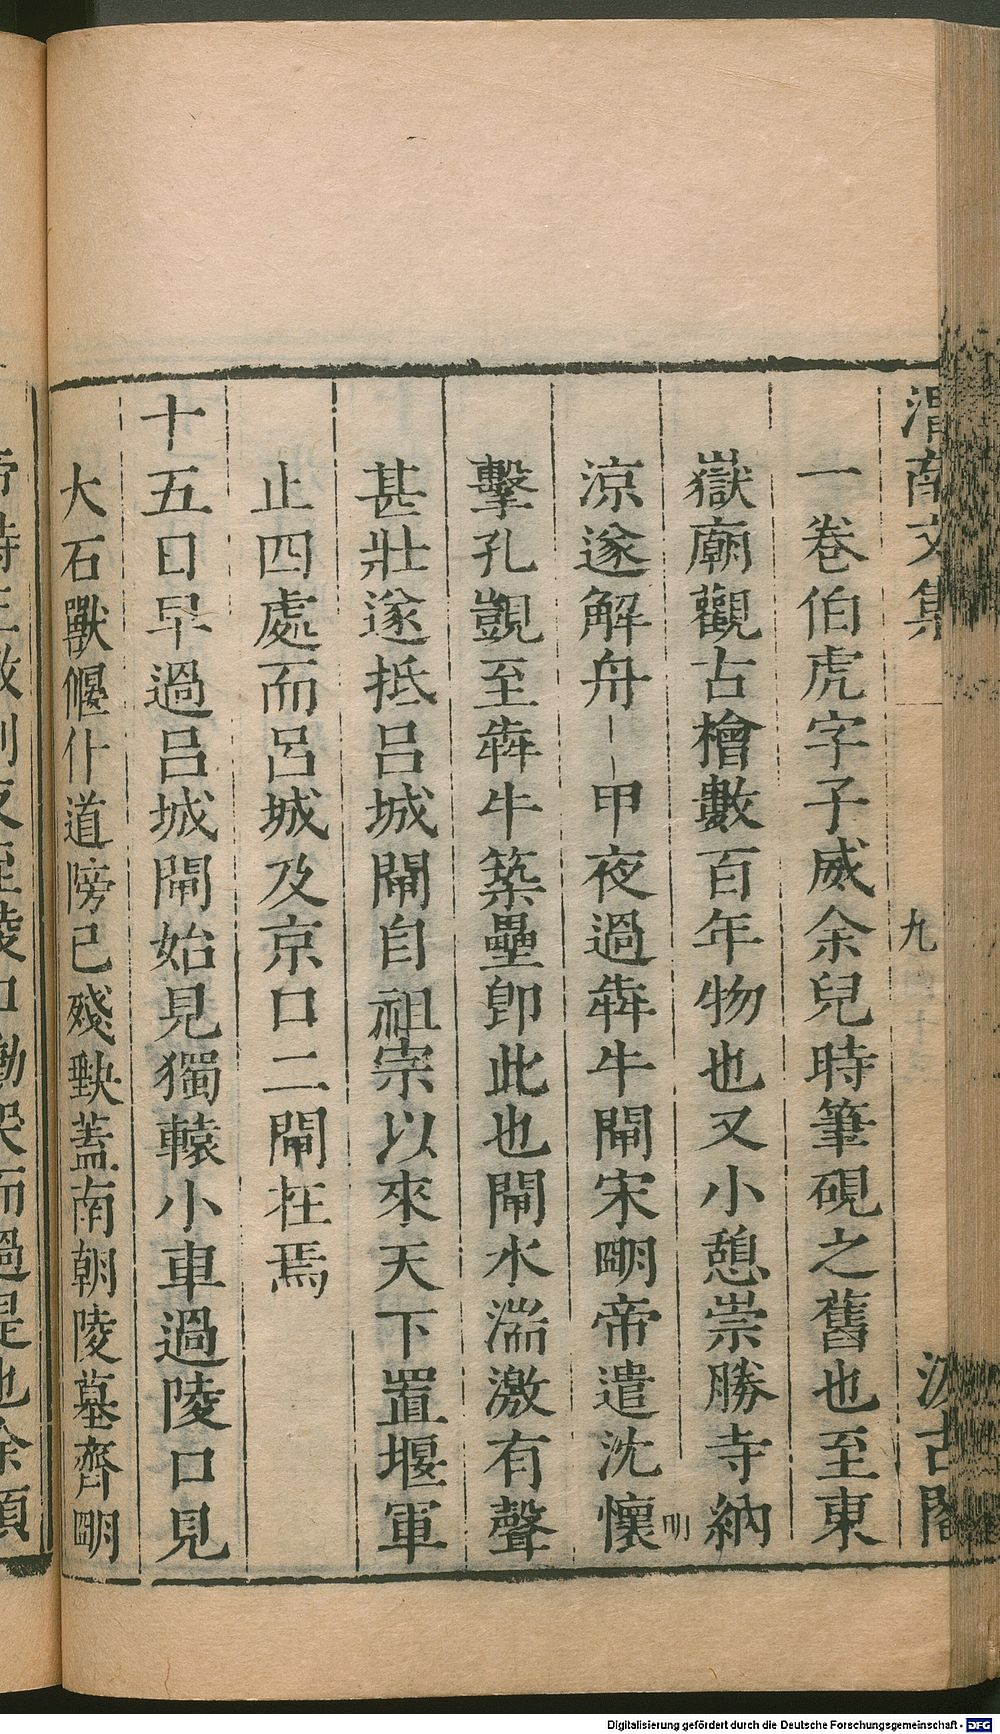 渭南文集 九 汲古閣
一卷伯虎字子威余兒時筆硯之舊也至東
嶽廟觀古檜數百年物也又小憩崇勝寺納
涼遂解舟甲夜過犇牛閘宋明帝遣沈懷明
擊孔覬至犇牛築壘卽此也閘水湍激有聲
甚壯遂抵呂城閘自祖宗以來天下置堰軍
止四處而呂城及京口二閘在焉
十五日早過呂城閘始見獨轅小車過陵口見
大石獸偃仆道傍已殘缺蓋南朝陵墓齊明
Digitalisierung gefördert durch die Deutsche Forschungsgemeinschaft - DFG